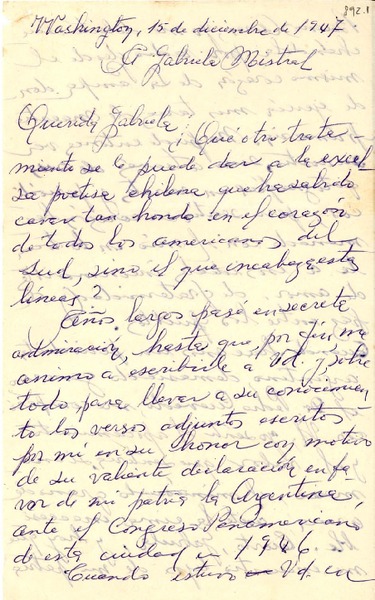 892.1
Washington, 15 de diciembre de 1947
A Gabriela Mistral
Querida Gabriela: ¿Qué otro trata-
miento se le puede dar a la excel-
sa poetisa chilena que ha sabido
cavar tan hondo en el corazón
de todos los americanos del
sud, sino el que encabeza estas
líneas?
Años largos pasé en secreta
admiración, hasta que, por fin, me
animo a escribirle a Vd. y, sobre
todo, para llevar a su conocimien-
to los versos adjuntos escritos
por mí en su honor con motivo
de su valiente declaración en fa-
vor de mi patria la Argentina
ante el Congreso Panamericano
de esta ciudad en 1946.
Cuando estuvo Vd. en